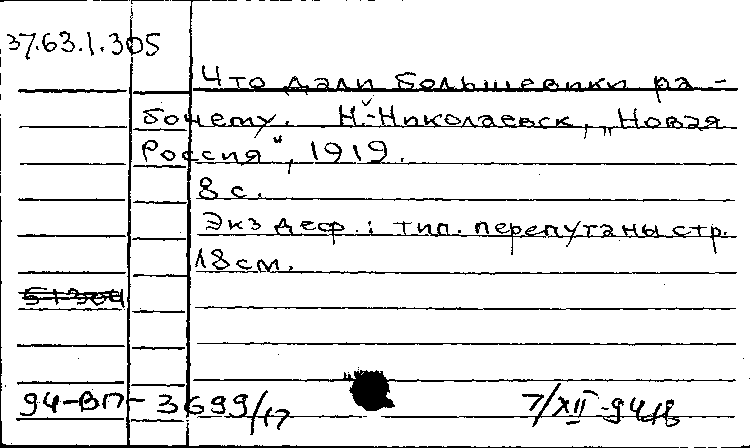 37.63.1.305
Что дали большевики ра-
бочему. Н.-Николаевск, „Новая
Россия“, 1919.
8 с.
Экз деф.: тип. перепутаны стр.
18 см.
94-ВП-3699/17